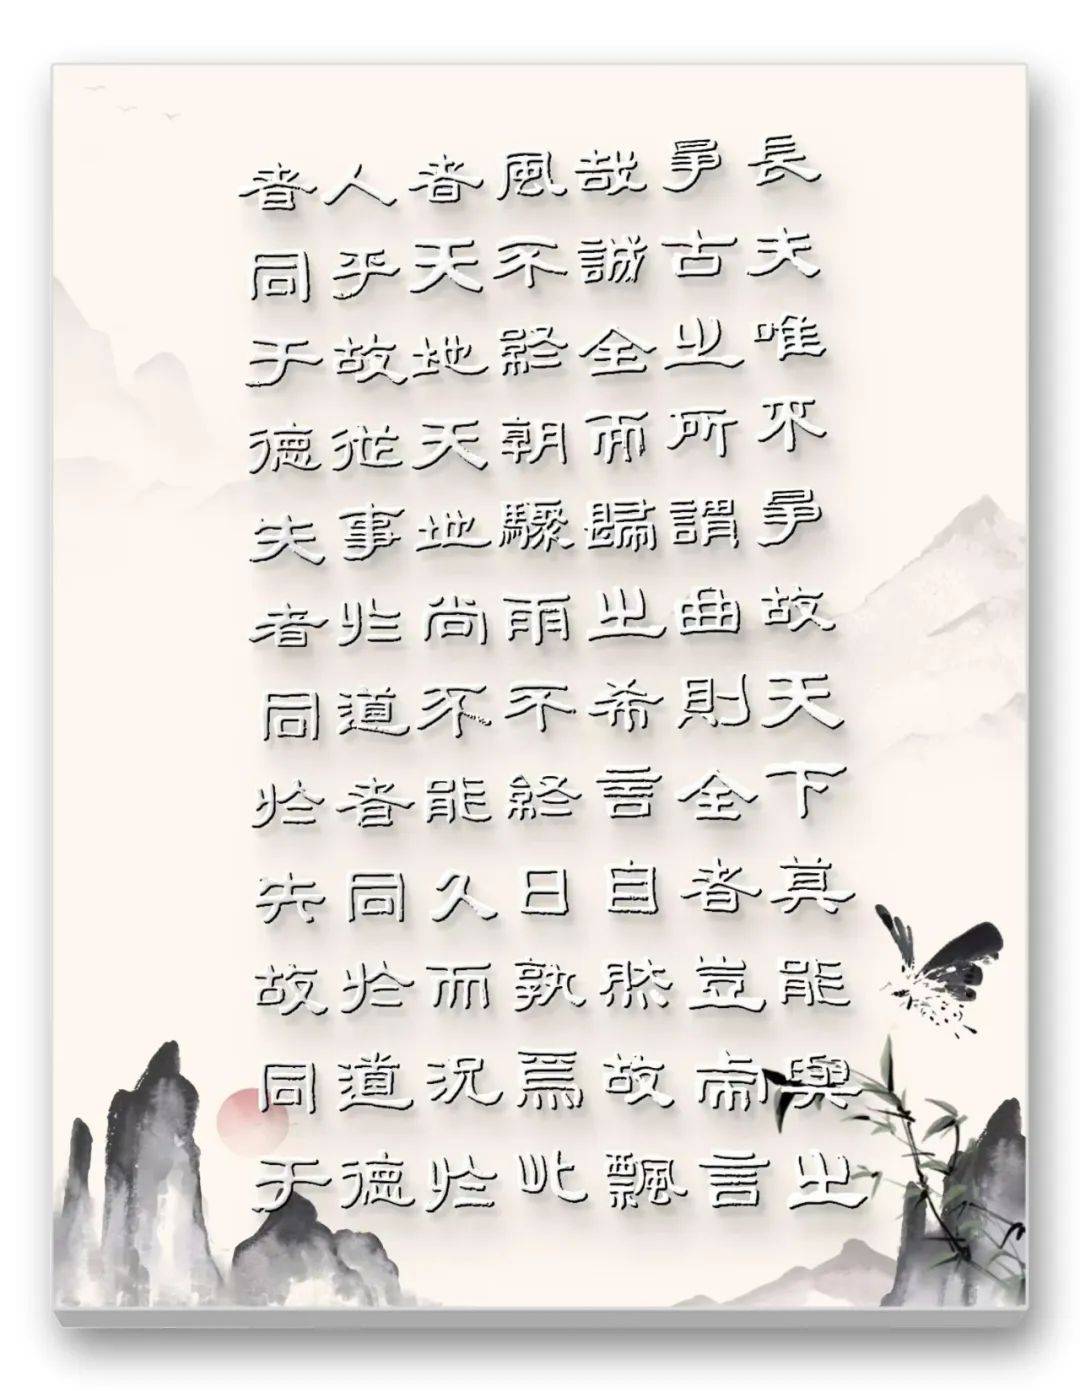 長夫唯不爭故天下莫能與之
爭古之所謂曲則全者豈虛言
哉誠全而歸之希言自然故飄
風不終朝驟雨不終日孰為此
者天地天地尚不能久而況於
人乎故從事於道者同於道德
者同于德失者同於失故同于